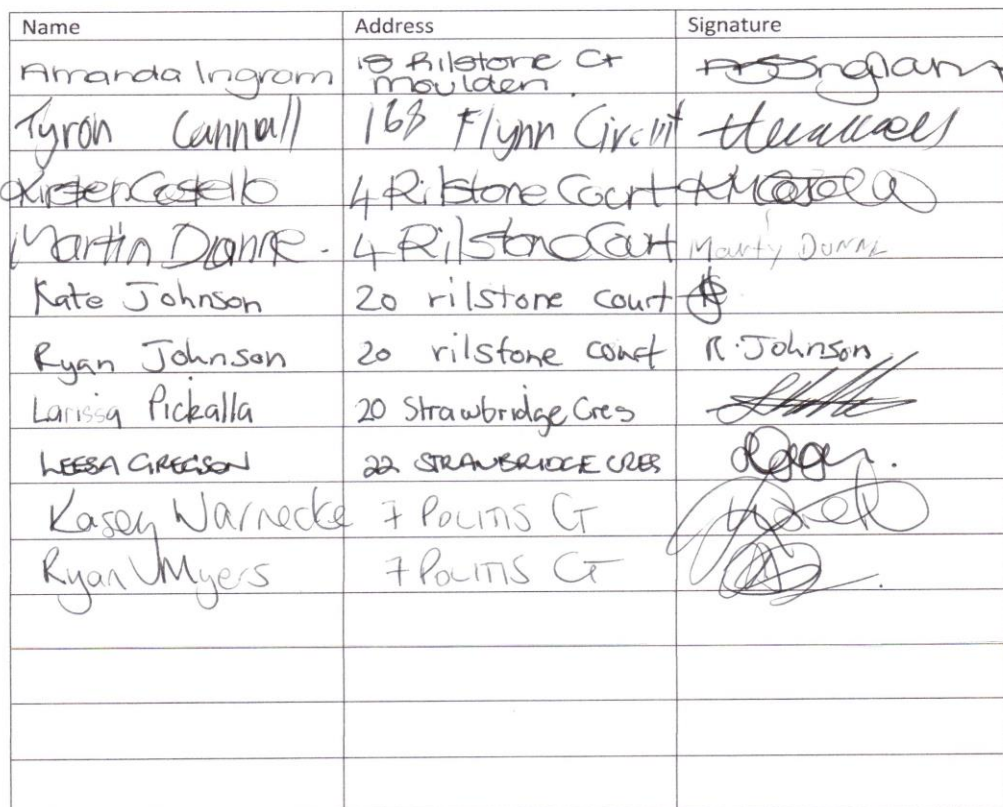 Name Address Signature
Amanda Ingram 18 Rilstone Ct
Moulden.
Tyron Cannall 168 Flynn Circuit
Kirsten Costello 4 Rilstone Court
Martin Dianne. 4 Rilstone Court Marty Dunne
Kate Johnson 20 rilstone court
Ryan Johnson 20 rilstone court R. Johnson
Larissa Pickalla 20 Strawbridge Cres
LEESA GREGSON 22 STRAWBRIDGE CRES
Kasey Warnecke 7 POLITIS CT
Ryan Myers 7 POLITIS CT